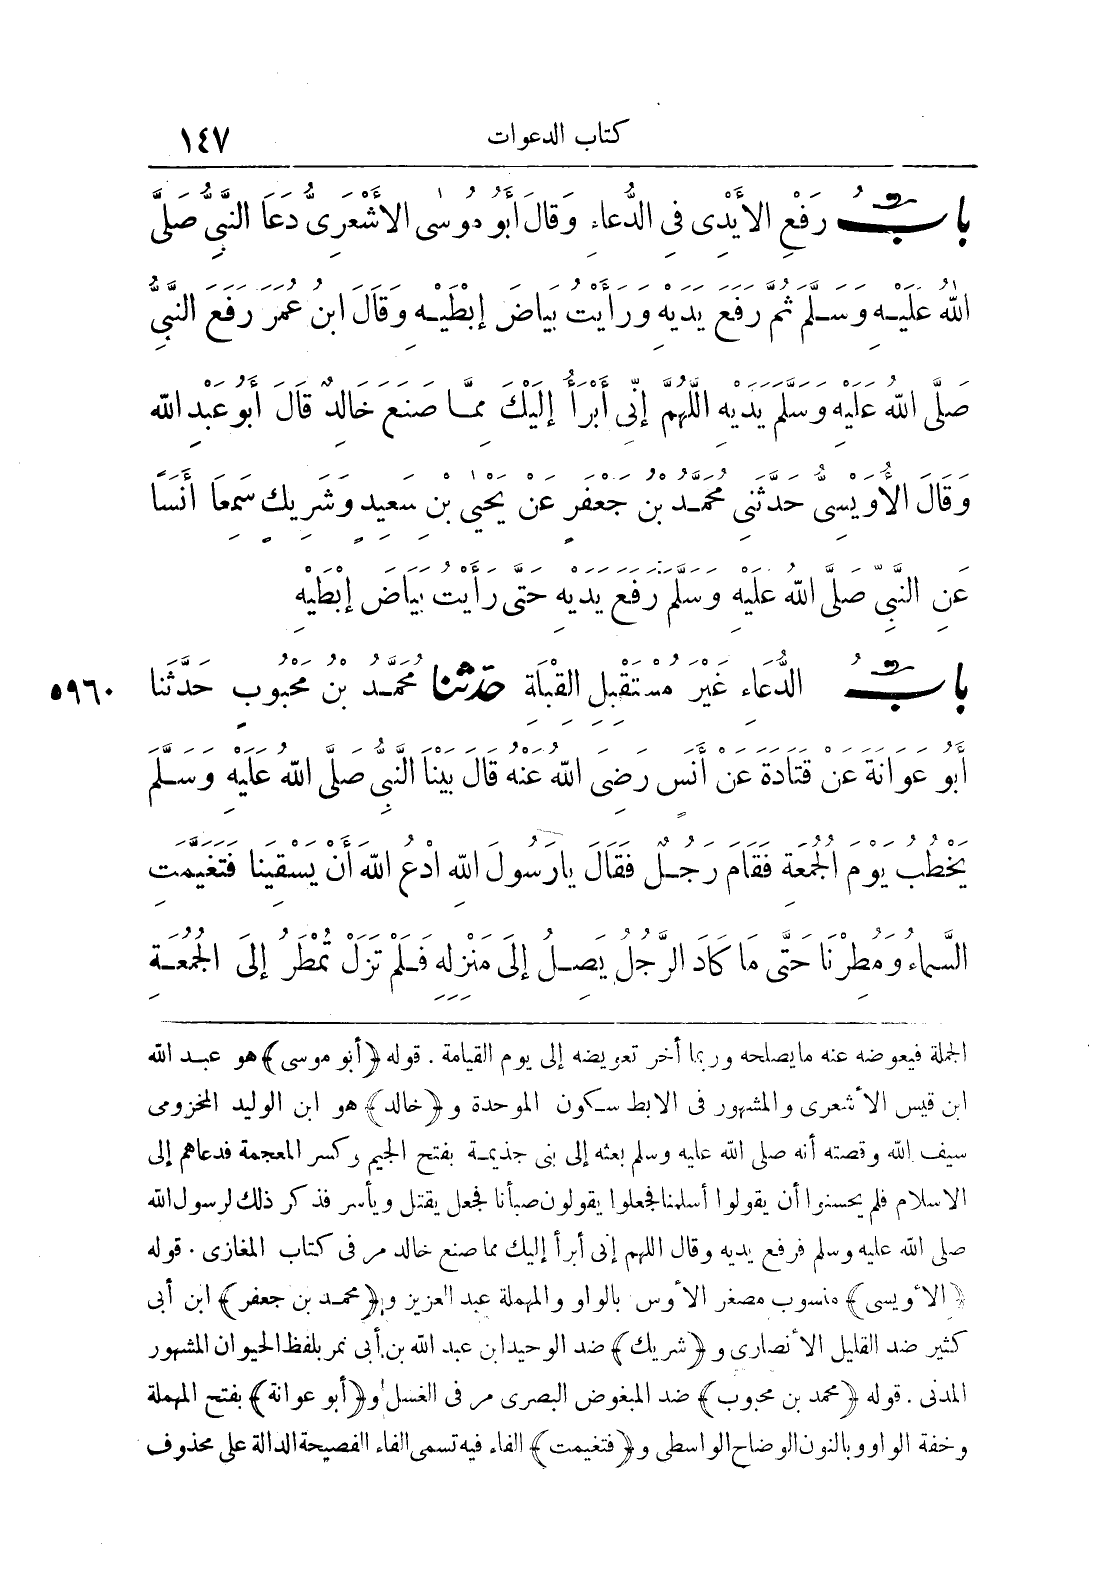 كتاب الدعوات ١٤٧
بابُ رَفْعِ الأَيْدِى فِى الدُّعاءِ وَقالَ أَبُو مُوسَى الأَشْعَرِىُّ دَعَا النَّبِىُّ صَلَّى
اللهُ عَلَيْهِ وَسَلَّمَ ثُمَّ رَفَعَ يَدَيْهِ وَرَأَيْتُ بَيَاضَ إِبْطَيْهِ وَقَالَ ابْنُ عُمَرَ رَفَعَ النَّبِىُّ
صَلَّى اللهُ عَلَيْهِ وَسَلَّمَ يَدَيْهِ اللَّهُمَّ إِنِّى أَبْرَأُ إِلَيْكَ مِمَّا صَنَعَ خَالِدٌ قَالَ أَبُو عَبْدِ اللهِ
وَقَالَ الأُوَيْسِىُّ حَدَّثَنِى مُحَمَّدُ بْنُ جَعْفَرٍ عَنْ يَحْيَى بْنِ سَعِيدٍ وَشَرِيكٍ سَمِعَا أَنَسًا
عَنِ النَّبِىِّ صَلَّى اللهُ عَلَيْهِ وَسَلَّمَ رَفَعَ يَدَيْهِ حَتَّى رَأَيْتُ بَيَاضَ إِبْطَيْهِ
بابُ الدُّعَاءِ غَيْرَ مُسْتَقْبِلِ القِبْلَةِ حَدَّثَنَا مُحَمَّدُ بْنُ مَحْبُوبٍ حَدَّثَنَا ٥٩٦٠
أَبُو عَوَانَةَ عَنْ قَتَادَةَ عَنْ أَنَسٍ رَضِىَ اللهُ عَنْهُ قَالَ بَيْنَا النَّبِىُّ صَلَّى اللهُ عَلَيْهِ وَسَلَّمَ
يَخْطُبُ يَوْمَ الجُمُعَةِ فَقَامَ رَجُلٌ فَقَالَ يارَسُولَ اللهِ ادْعُ اللهَ أَنْ يَسْقِيَنَا فَتَغَيَّمَتِ
السَّمَاءُ وَمُطِرْنَا حَتَّى مَا كَادَ الرَّجُلُ يَصِلُ إِلَى مَنْزِلِهِ فَلَمْ تَزَلْ تُمْطَرُ إِلَى الجُمُعَةِ
الجملة فيعوضه عنه مايصلحه وربما أخر تعويضه إلى يوم القيامة . قوله ﴿أبو موسى﴾ هو عبد الله
ابن قيس الأشعرى والمشهور فى الابط سكون الموحدة و﴿خالد﴾ هو ابن الوليد المخزومى
سيف الله وقصته أنه صلى الله عليه وسلم بعثه إلى بنى جذيمة بفتح الجيم وكسر المعجمة فدعاهم إلى
الاسلام فلم يحسنوا أن يقولوا أسلمنا فجعلوا يقولون صبأنا فجعل يقتل ويأسر فذكر ذلك لرسول الله
صلى الله عليه وسلم فرفع يديه وقال اللهم إنى أبرأ إليك مما صنع خالد مر فى كتاب المغازى . قوله
﴿الأويسى﴾ منسوب مصغر الأوس بالواو والمهملة عبد العزيز و﴿محمد بن جعفر﴾ ابن أبى
كثير ضد القليل الأنصارى و﴿شريك﴾ ضد الوحيد ابن عبد الله بن أبى نمر بلفظ الحيوان المشهور
المدنى . قوله ﴿محمد بن محبوب﴾ ضد المبغوض البصرى مر فى الغسل و﴿أبو عوانة﴾ بفتح المهملة
وخفة الواو وبالنون الوضاح الواسطى و﴿فتغيمت﴾ الفاء فيه تسمى الفاء الفصيحة الدالة على محذوف